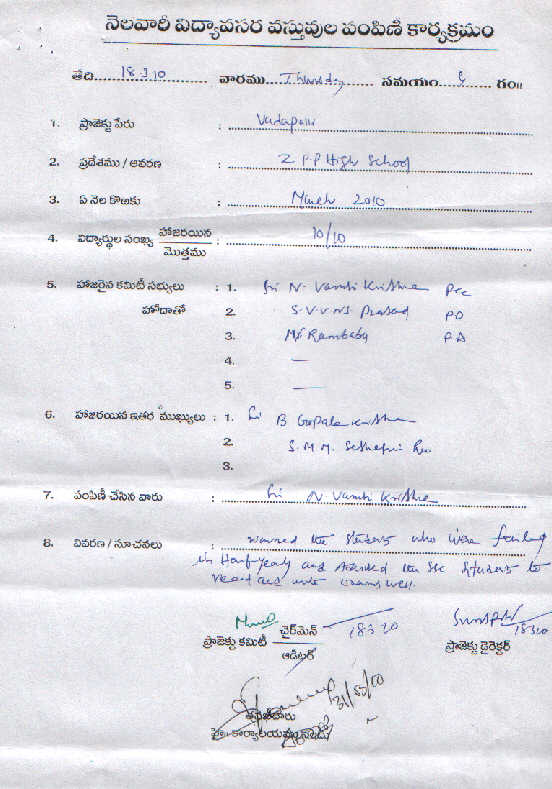 నెలవారీ విద్యావసర వస్తువుల పంపిణీ కార్యక్రమం
తేది 18.3.10 వారము Thursday సమయం 9 గం॥
1. ప్రాజెక్టు పేరు : Vadapalli
2. ప్రదేశము / ఆవరణ : Z P P High School
3. ఏ నెల కొఱకు : March 2010
4. విద్యార్థుల సంఖ్య హాజరయిన : 10/10
మొత్తము
5. హాజరైన కమిటీ సభ్యులు : 1. Sri N. Vamsi Krishna Pcc
హోదాతో 2. S.V.V.N.S. Prasad PD
3. Mr Rambabu PA
4. —
5. —
6. హాజరయిన ఇతర ముఖ్యులు : 1. Sri B Gopala Krishna
2. S.M.M.
3.
7. పంపిణీ చేసిన వారు : Sri N. Vamsi Krishna
8. వివరణ / సూచనలు : warned the students who were failing
in Half yearly and Advised the SSC Students to
read and write exams well.
ప్రాజెక్టు కమిటీ చైర్‌మెన్ 18 3 10
ఆడిటర్ ప్రాజెక్టు డైరెక్టర్ 18 3 10
31/03/10